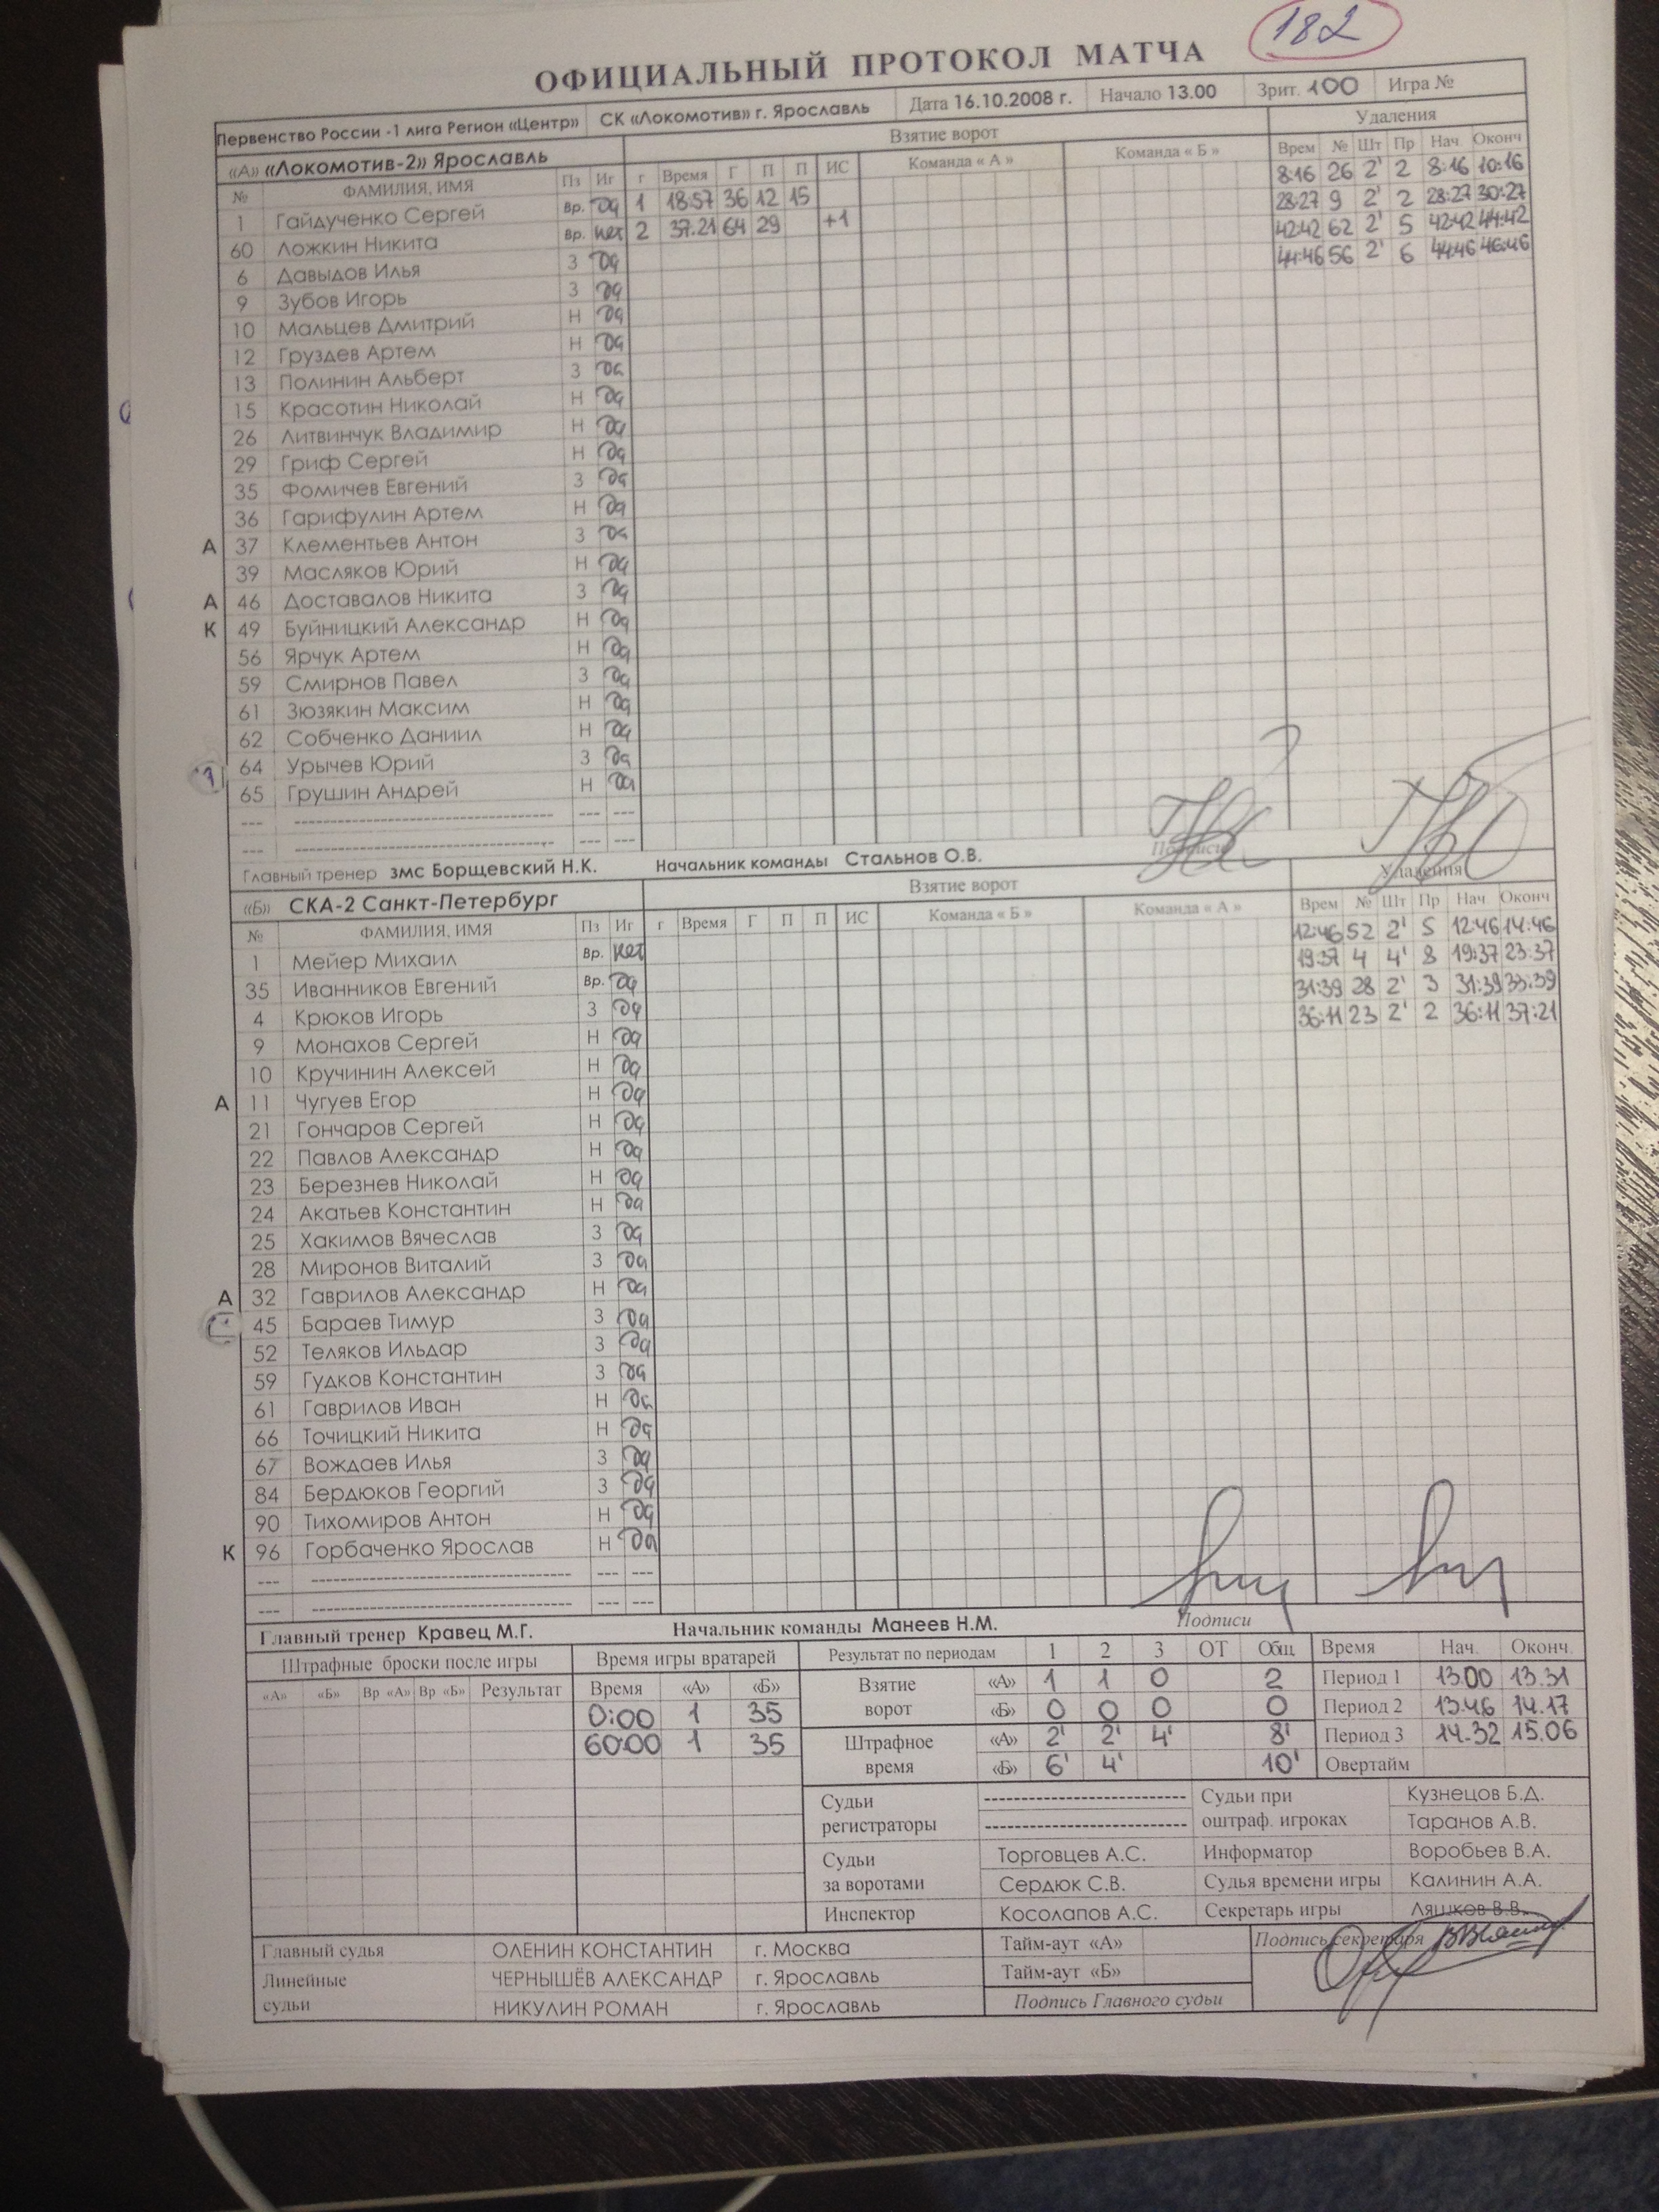 182
ОФИЦИАЛЬНЫЙ ПРОТОКОЛ МАТЧА
Первенство России -1 лига Регион «Центр» СК «Локомотив» г. Ярославль Дата 16.10.2008 г. Начало 13.00 Зрит. 100 Игра №
«А» «Локомотив-2» Ярославль Взятие ворот Удаления
№ ФАМИЛИЯ, ИМЯ Пз Иг г Время Г П П ИС Команда « А » Команда « Б » Врем № Шт Пр Нач. Оконч
1 Гайдученко Сергей Вр. да 1 18:57 36 12 15 8:16 26 2' 2 8:16 10:16
60 Ложкин Никита Вр. нет 2 37.21 64 29 +1 28:27 9 2' 2 28:27 30:27
6 Давыдов Илья З да 42:42 62 2' 5 42:42 44:42
9 Зубов Игорь З да 44:46 56 2' 6 44:46 46:46
10 Мальцев Дмитрий Н да
12 Груздев Артем Н да
13 Полинин Альберт З да
15 Красотин Николай Н да
26 Литвинчук Владимир Н да
29 Гриф Сергей Н да
35 Фомичев Евгений З да
36 Гарифулин Артем Н да
А 37 Клементьев Антон З да
39 Масляков Юрий Н да
А 46 Доставалов Никита З да
К 49 Буйницкий Александр Н да
56 Ярчук Артем Н да
59 Смирнов Павел З да
61 Зюзякин Максим Н да
62 Собченко Даниил Н да
64 Урычев Юрий З да
65 Грушин Андрей Н да
--- --- --- ---
--- --- --- ---
Главный тренер змс Борщевский Н.К. Начальник команды Стальнов О.В. Подписи
«Б» СКА-2 Санкт-Петербург Взятие ворот Удаления
№ ФАМИЛИЯ, ИМЯ Пз Иг г Время Г П П ИС Команда « Б » Команда « А » Врем № Шт Пр Нач Оконч
1 Мейер Михаил Вр. нет 12:46 52 2' 5 12:46 14:46
35 Иванников Евгений Вр. да 19:37 4 4' 8 19:37 23:37
4 Крюков Игорь З да 31:39 28 2' 3 31:39 33:39
9 Монахов Сергей Н да 36:11 23 2' 2 36:11 37:21
10 Кручинин Алексей Н да
А 11 Чугуев Егор Н да
21 Гончаров Сергей Н да
22 Павлов Александр Н да
23 Березнев Николай Н да
24 Акатьев Константин Н да
25 Хакимов Вячеслав З да
28 Миронов Виталий З да
А 32 Гаврилов Александр Н да
45 Бараев Тимур З да
52 Теляков Ильдар З да
59 Гудков Константин З да
61 Гаврилов Иван Н да
66 Точицкий Никита Н да
67 Вождаев Илья З да
84 Бердюков Георгий З да
90 Тихомиров Антон Н да
К 96 Горбаченко Ярослав Н да
--- --- --- ---
--- --- --- ---
Главный тренер Кравец М.Г. Начальник команды Манеев Н.М. Подписи
Штрафные броски после игры Время игры вратарей Результат по периодам 1 2 3 ОТ Общ Время Нач. Оконч.
«А» «Б» Вр «А» Вр «Б» Результат Время «А» «Б» Взятие «А» 1 1 0 2 Период 1 13.00 13.31
0:00 1 35 ворот «Б» 0 0 0 0 Период 2 13.46 14.17
60:00 1 35 Штрафное «А» 2' 2' 4' 8' Период 3 14.32 15.06
время «Б» 6' 4' 10' Овертайм
Судьи --- Судьи при Кузнецов Б.Д.
регистраторы --- оштраф. игроках Таранов А.В.
Судьи Торговцев А.С. Информатор Воробьев В.А.
за воротами Сердюк С.В. Судья времени игры Калинин А.А.
Инспектор Косолапов А.С. Секретарь игры Ляшков В.В.
Главный судья ОЛЕНИН КОНСТАНТИН г. Москва Тайм-аут «А» Подпись секретаря
Линейные ЧЕРНЫШЁВ АЛЕКСАНДР г. Ярославль Тайм-аут «Б»
судьи НИКУЛИН РОМАН г. Ярославль Подпись Главного судьи